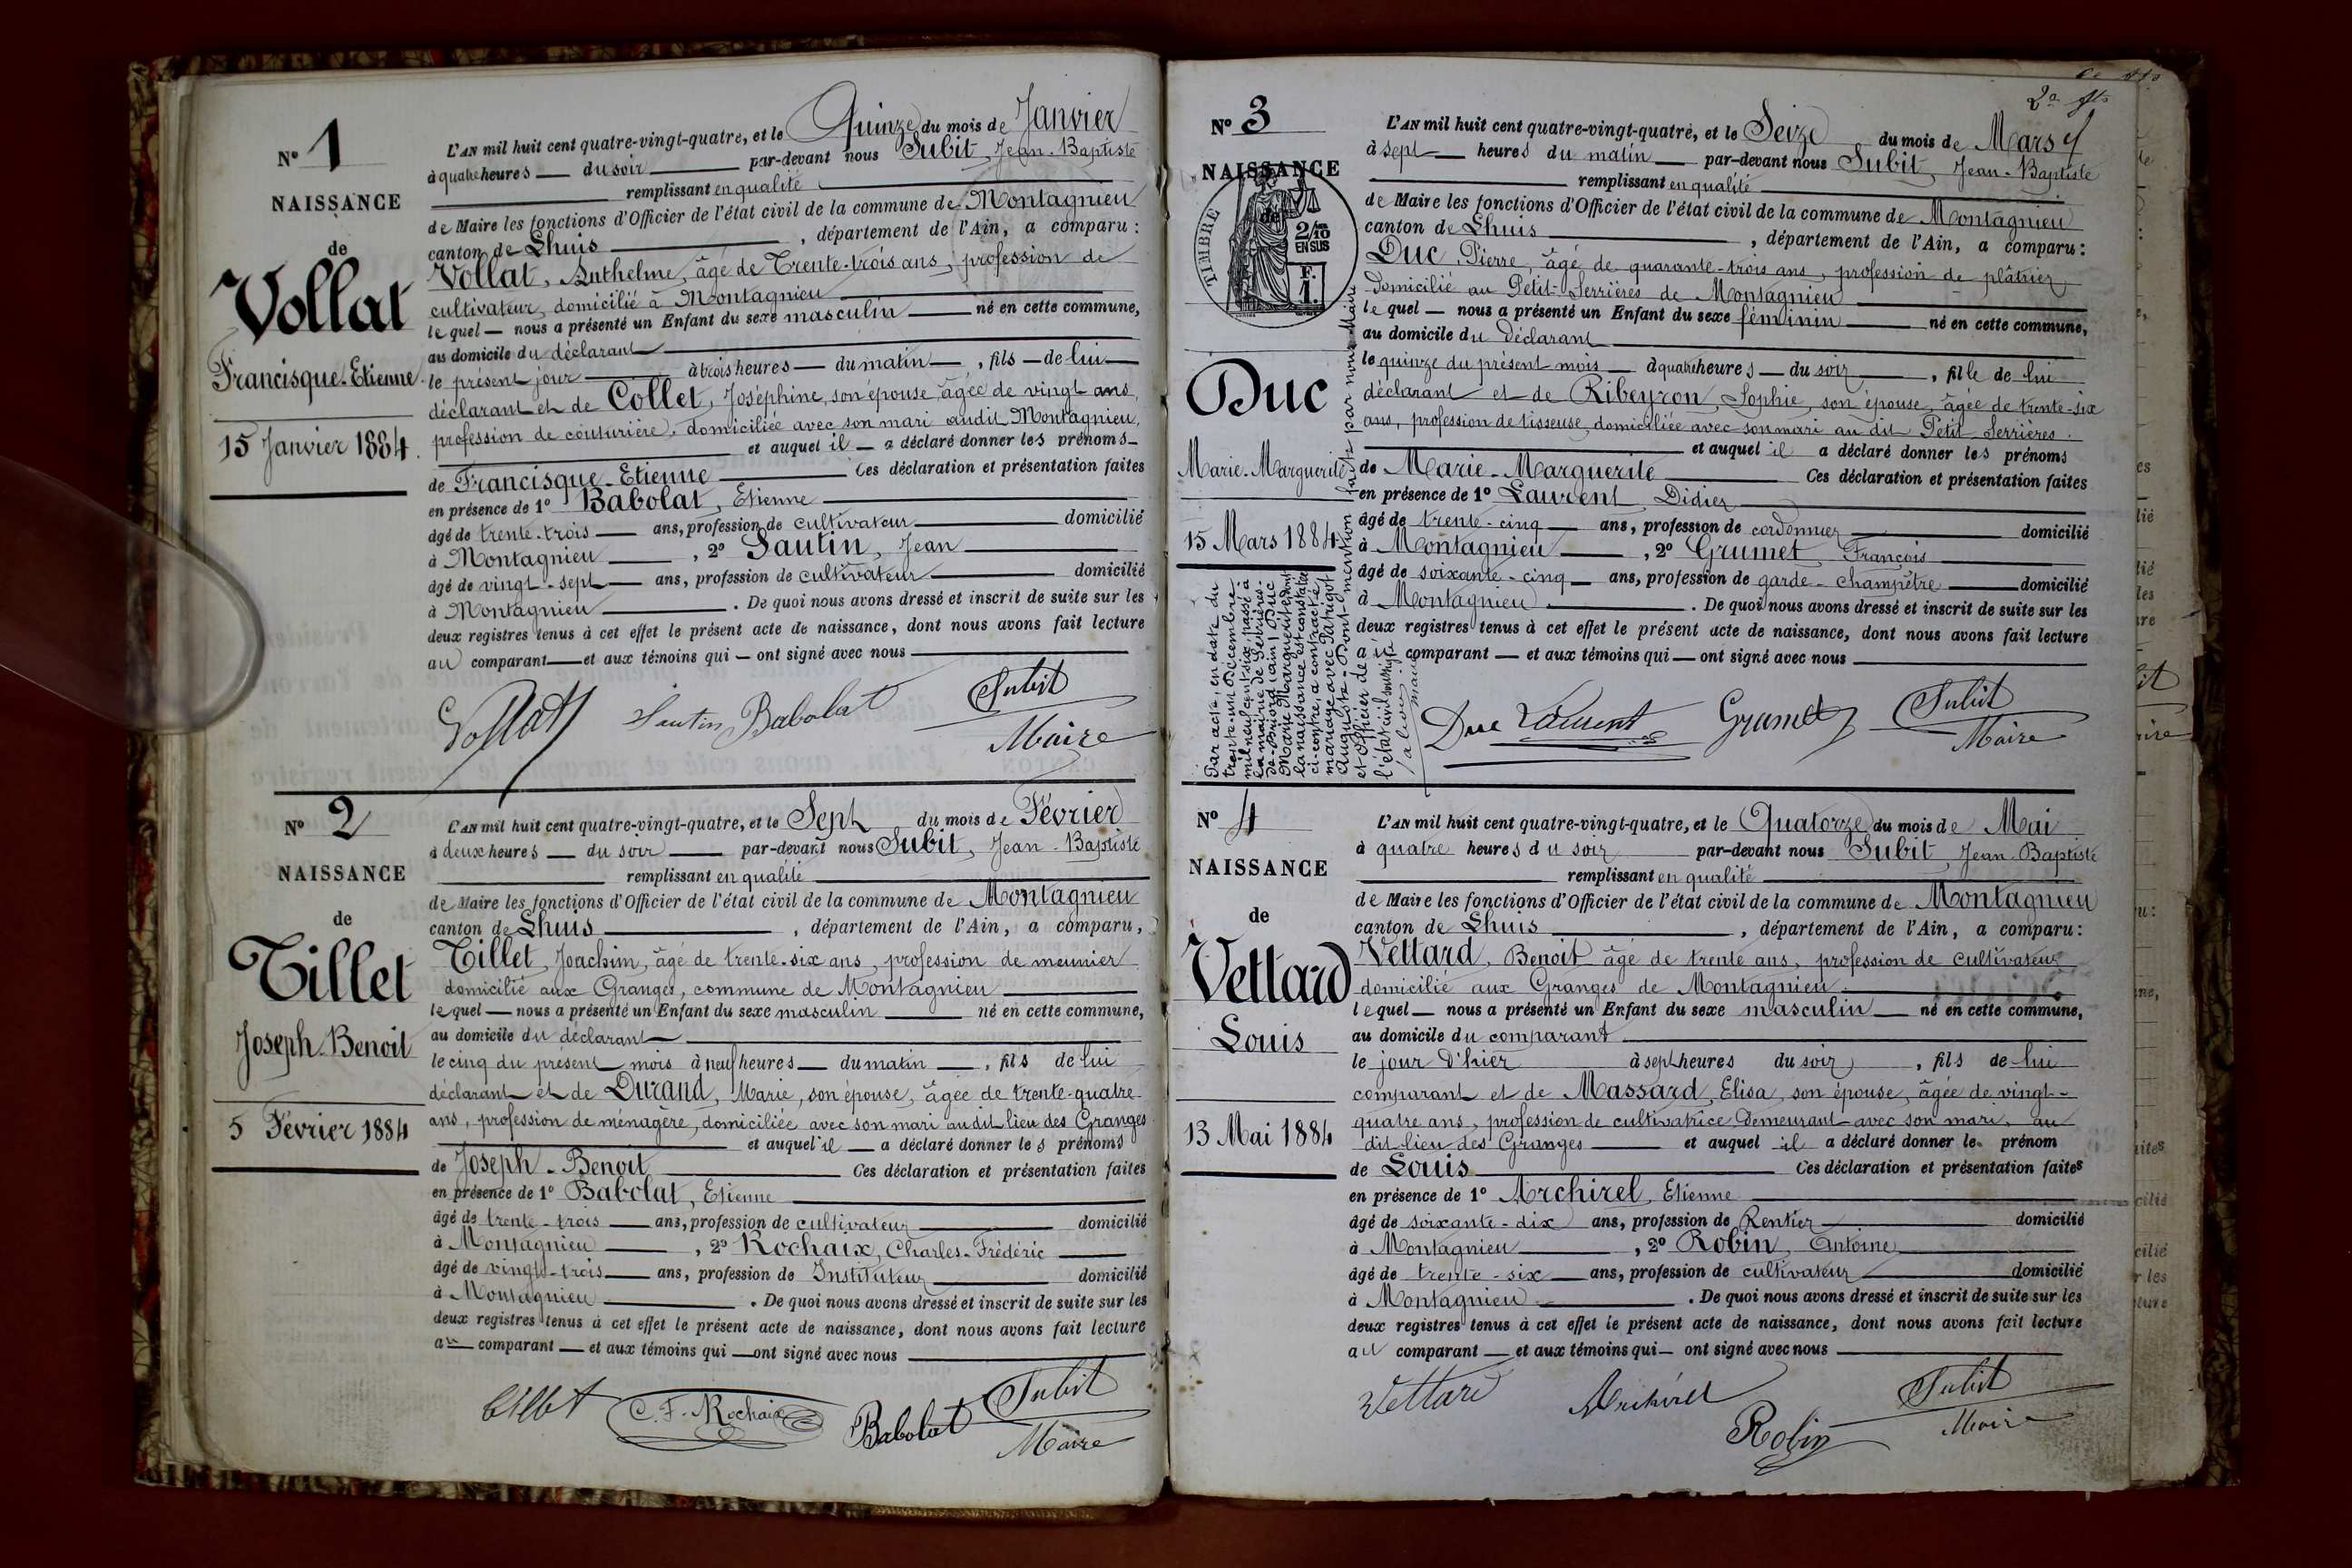 Nº 1
NAISSANCE
de
Vollat
Francisque-Etienne
15 Janvier 1884.
L'AN mil huit cent quatre-vingt-quatre, et le Quinze du mois de Janvier
à quatre heures du soir par-devant nous Subit, Jean-Baptiste
remplissant en qualité
de Maire les fonctions d'Officier de l'état civil de la commune de Montagnieu
canton de Lhuis , département de l'Ain, a comparu :
Vollat, Anthelme, âgé de Trente-trois ans, profession de
cultivateur, domicilié à Montagnieu
lequel nous a présenté un Enfant du sexe masculin né en cette commune,
au domicile du déclarant
le présent jour à trois heures du matin , fils de lui
déclarant et de Collet, Joséphine, son épouse, âgée de vingt ans,
profession de couturière, domiciliée avec son mari audit Montagnieu,
et auquel il a déclaré donner les prénoms
de Francisque-Etienne Ces déclaration et présentation faites
en présence de 1º Babolat, Etienne
âgé de trente-trois ans, profession de cultivateur domicilié
à Montagnieu , 2º Sautin, Jean
âgé de vingt-sept ans, profession de cultivateur domicilié
à Montagnieu . De quoi nous avons dressé et inscrit de suite sur les
deux registres tenus à cet effet le présent acte de naissance, dont nous avons fait lecture
au comparant et aux témoins qui ont signé avec nous
Vollat Sautin Babolat Subit
Maire
Nº 2
NAISSANCE
de
Tillet
Joseph-Benoit
5 Février 1884
L'AN mil huit cent quatre-vingt-quatre, et le Sept du mois de Février
à deux heures du soir par-devant nous Subit, Jean-Baptiste
remplissant en qualité
de Maire les fonctions d'Officier de l'état civil de la commune de Montagnieu
canton de Lhuis , département de l'Ain, a comparu,
Tillet, Joachim, âgé de trente-six ans, profession de meunier
domicilié aux Granges, commune de Montagnieu
lequel nous a présenté un Enfant du sexe masculin né en cette commune,
au domicile du déclarant
le cinq du présent mois à neuf heures du matin , fils de lui
déclarant et de Durand, Marie, son épouse, âgée de trente-quatre
ans, profession de ménagère, domiciliée avec son mari audit lieu des Granges
et auquel il a déclaré donner les prénoms
de Joseph-Benoit Ces déclaration et présentation faites
en présence de 1º Babolat, Etienne
âgé de trente-trois ans, profession de cultivateur domicilié
à Montagnieu , 2º Rochaix, Charles-Frédéric
âgé de vingt-trois ans, profession de Instituteur domicilié
à Montagnieu . De quoi nous avons dressé et inscrit de suite sur les
deux registres tenus à cet effet le présent acte de naissance, dont nous avons fait lecture
au comparant et aux témoins qui ont signé avec nous
Tillet C. F. Rochaix Babolat Subit
Maire
Nº 3
NAISSANCE
de
TIMBRE
2/10
EN SUS
F.
1.
Duc
Marie-Marguerite
15 Mars 1884
Par acte, en date du
trente-un Décembre
mil neuf cent six, passé à
la mairie de Serrières-
de-Briord (Ain) Duc
Marie Marguerite, dont
la naissance est constatée
ci-contre, a contracté
mariage avec Patriguet
Auguste. Dont mention faite par nous Maire
et Officier de
l'état civil soussigné
L'AN mil huit cent quatre-vingt-quatre, et le Seize du mois de Mars
à sept heures du matin par-devant nous Subit, Jean-Baptiste
remplissant en qualité
de Maire les fonctions d'Officier de l'état civil de la commune de Montagnieu
canton de Lhuis , département de l'Ain, a comparu :
Duc, Pierre, âgé de quarante-trois ans, profession de plâtrier,
domicilié au Petit-Serrières de Montagnieu
lequel nous a présenté un Enfant du sexe féminin né en cette commune,
au domicile du déclarant
le quinze du présent mois à quatre heures du soir , fille de lui
déclarant et de Ribeyron, Sophie, son épouse, âgée de trente-six
ans, profession de tisseuse, domiciliée avec son mari au dit Petit Serrières.
et auquel il a déclaré donner les prénoms
de Marie-Marguerite Ces déclaration et présentation faites
en présence de 1º Laurent, Didier
âgé de trente-cinq ans, profession de cordonnier domicilié
à Montagnieu , 2º Grumet, François
âgé de soixante-cinq ans, profession de garde-champêtre domicilié
à Montagnieu . De quoi nous avons dressé et inscrit de suite sur les
deux registres tenus à cet effet le présent acte de naissance, dont nous avons fait lecture
comparant et aux témoins qui ont signé avec nous
Duc Laurent Grumet Subit
Maire
Nº 4
NAISSANCE
de
Vettard
Louis
13 Mai 1884
L'AN mil huit cent quatre-vingt-quatre, et le Quatorze du mois de Mai
à quatre heures du soir par-devant nous Subit, Jean-Baptiste
remplissant en qualité
de Maire les fonctions d'Officier de l'état civil de la commune de Montagnieu
canton de Lhuis , département de l'Ain, a comparu :
Vettard, Benoit âgé de trente ans, profession de cultivateur
domicilié aux Granges de Montagnieu
lequel nous a présenté un Enfant du sexe masculin né en cette commune,
au domicile du comparant
le jour d'hier à sept heures du soir , fils de lui
comparant et de Massard, Elisa, son épouse, âgée de vingt-
quatre ans, profession de cultivatrice demeurant avec son mari, au
dit lieu des Granges et auquel il a déclaré donner le prénom
de Louis Ces déclaration et présentation faites
en présence de 1º Archirel, Etienne
âgé de soixante-dix ans, profession de Rentier domicilié
à Montagnieu , 2º Robin, Antoine
âgé de trente-six ans, profession de cultivateur domicilié
à Montagnieu . De quoi nous avons dressé et inscrit de suite sur les
deux registres tenus à cet effet le présent acte de naissance, dont nous avons fait lecture
au comparant et aux témoins qui ont signé avec nous
Vettard Archirel Robin Subit
Maire